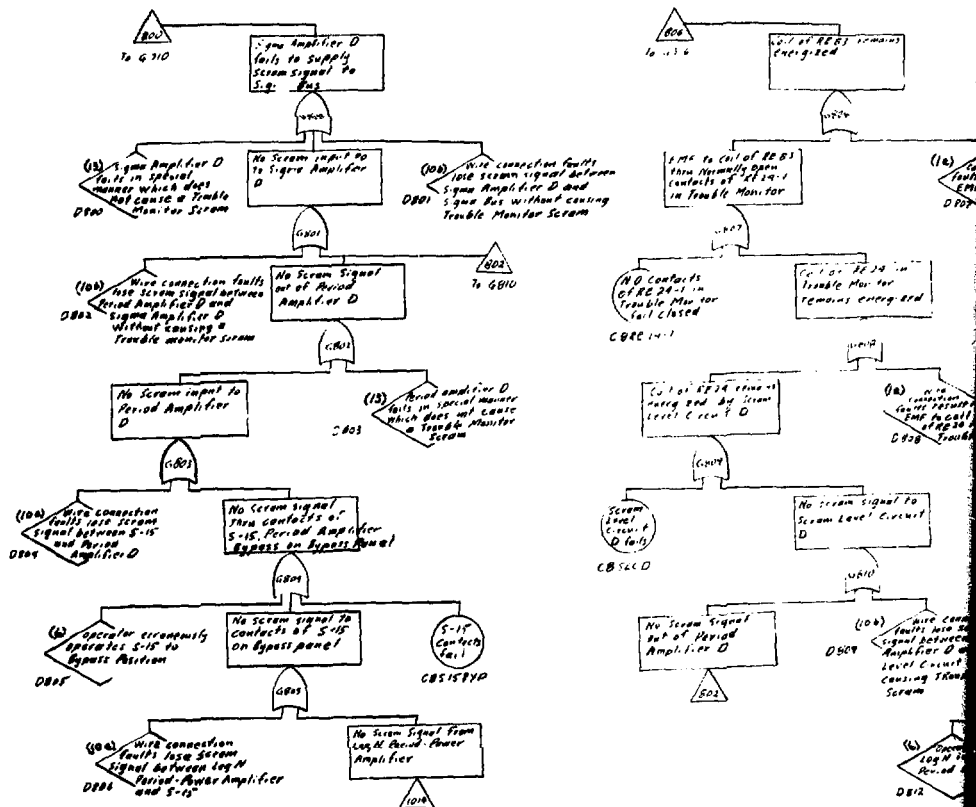 800
To G310
Sigma Amplifier D
fails to supply
Scram Signal to
Bus
(13) Sigma Amplifier D
fails in special
manner which does
not cause a Trouble
Monitor Scram
D800
No Scram input
To Sigma Amplifier
D
(10b) Wire connection faults
lose scram signal between
Sigma Amplifier D and
Sigma Bus without causing
Trouble Monitor Scram
D801
G801
(10b) Wire connection faults
lose scram signal between
Period Amplifier D and
Sigma Amplifier D
without causing a
Trouble monitor scram
D802
No Scram Signal
out of Period
Amplifier D
802
To G810
G802
No Scram input to
Period Amplifier
D
(13) Period amplifier D
fails in special manner
which does not cause
a Trouble Monitor
Scram
D803
G803
(10a) Wire connection
faults lose scram
signal between S-15
and Period
Amplifier D
D804
No scram signal
thru contacts of
S-15, Period Amplifier
Bypass on Bypass Panel
G804
(6) operator erroneously
operates S-15 to
Bypass Position
D805
No scram signal to
contacts of S-15
on Bypass panel
S-15
Contacts
fail
CBS15BYP
G805
(10a) Wire connection
faults lose scram
signal between Log N
Period-Power Amplifier
and S-15
D806
No Scram Signal from
Log N Period-Power
Amplifier
1014
806
Coil of REB3 remains
energized
EMF to Coil of REB3
thru Normally open
contacts of RE24-1
in Trouble Monitor
(1a)
D807
G807
N.O. Contacts
of RE24-1 in
Trouble Monitor
fail closed
CBRE24-1
Coil of RE24 in
Trouble Monitor
remains energized
Coil of RE24 remains
energized by Scram
Level Circuit D
(1a) Wire
connection
faults result
EMF to coil
of RE24
D808
G809
Scram
Level
Circuit
D fails
CBSLCD
No scram signal to
Scram Level Circuit
D
G810
No Scram Signal
out of Period
Amplifier D
802
(10b) Wire
faults lose
signal between
Amplifier D
Level Circuit
causing
Scram
D809
(6)
Log N
Period
D812